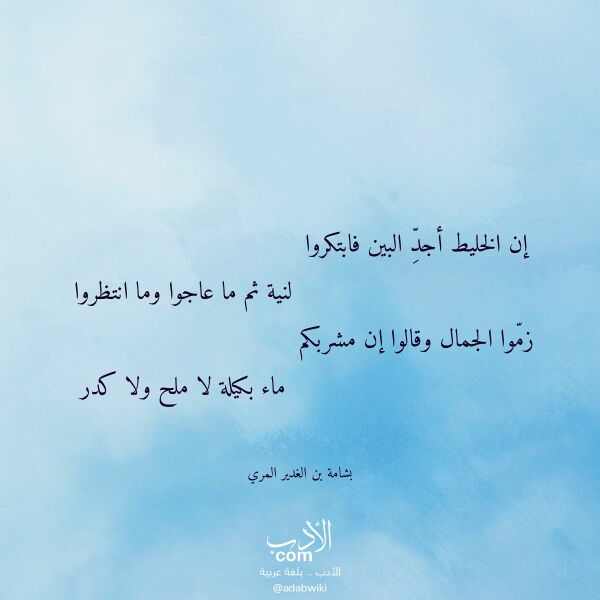 إن الخليط أجدِّ البين فابتكروا
لنية ثم ما عاجوا وما انتظروا
زمّوا الجمال وقالوا إن مشربكم
ماء بكيلة لا ملح ولا كدر
بشامة بن الغدير المري
الأدب
com
الأدب .. بلغة عربية
@adabwiki